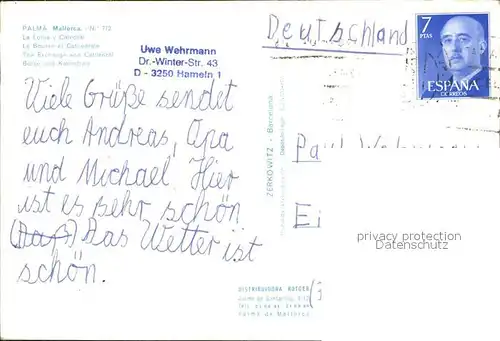 PALMA Mallorca. - N.° 112
La Lonja y Catedral
La Bourse et Cathedrale
The Exchange and Cathedral
Börse und Kathedrale
Uwe Wehrmann
Dr.-Winter-Str. 43
D - 3250 Hameln 1
Viele Grüße sendet
euch Andreas, Opa
und Michael. Hier
ist es sehr schön
Das Wetter ist
schön.
ZERKOWITZ - Barcelona
DISTRIBUIDORA ROTGER
Palma de Mallorca
Deutschland
7
PTAS
ESPAÑA
CORREOS
Pau
Ei
privacy protection
Datenschutz